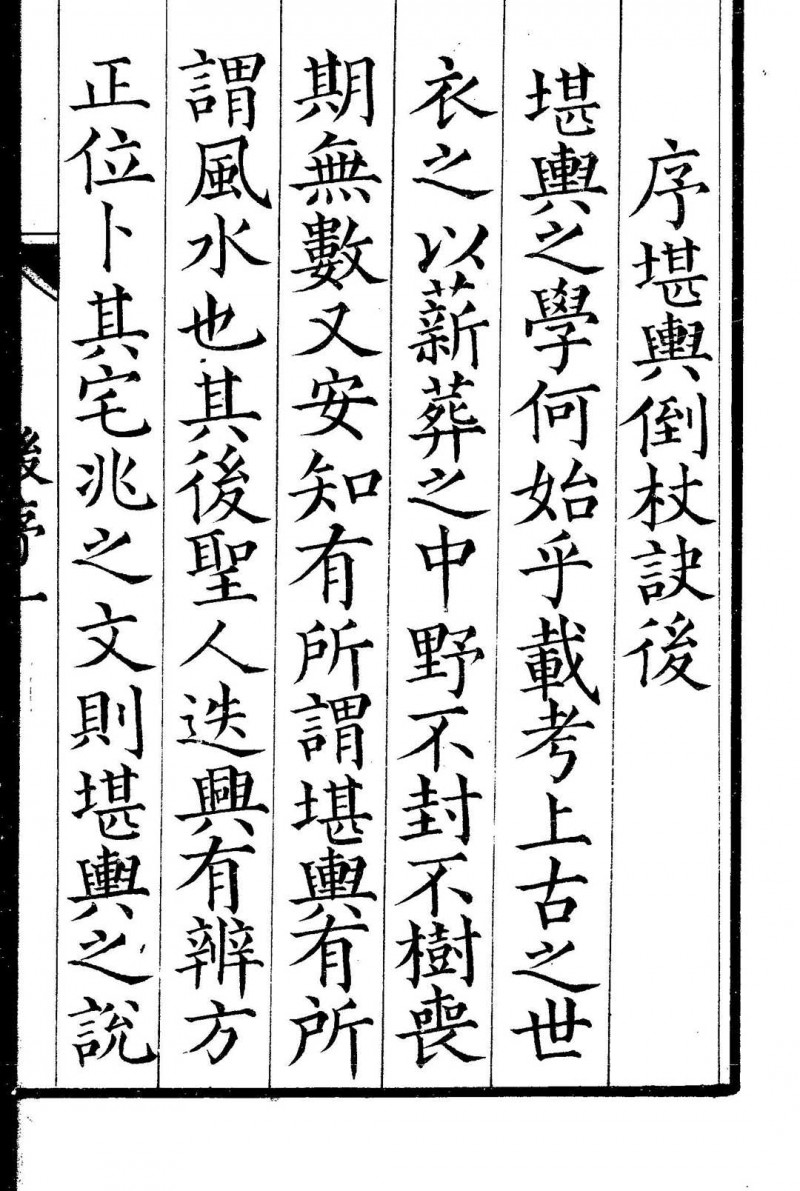 序堪輿倒杖訣後
堪輿之學何始乎載考上古之世
衣之以薪葬之中野不封不樹喪
期無數又安知有所謂堪輿有所
謂風水也其後聖人迭興有辨方
正位卜其宅兆之文則堪輿之說
後序一